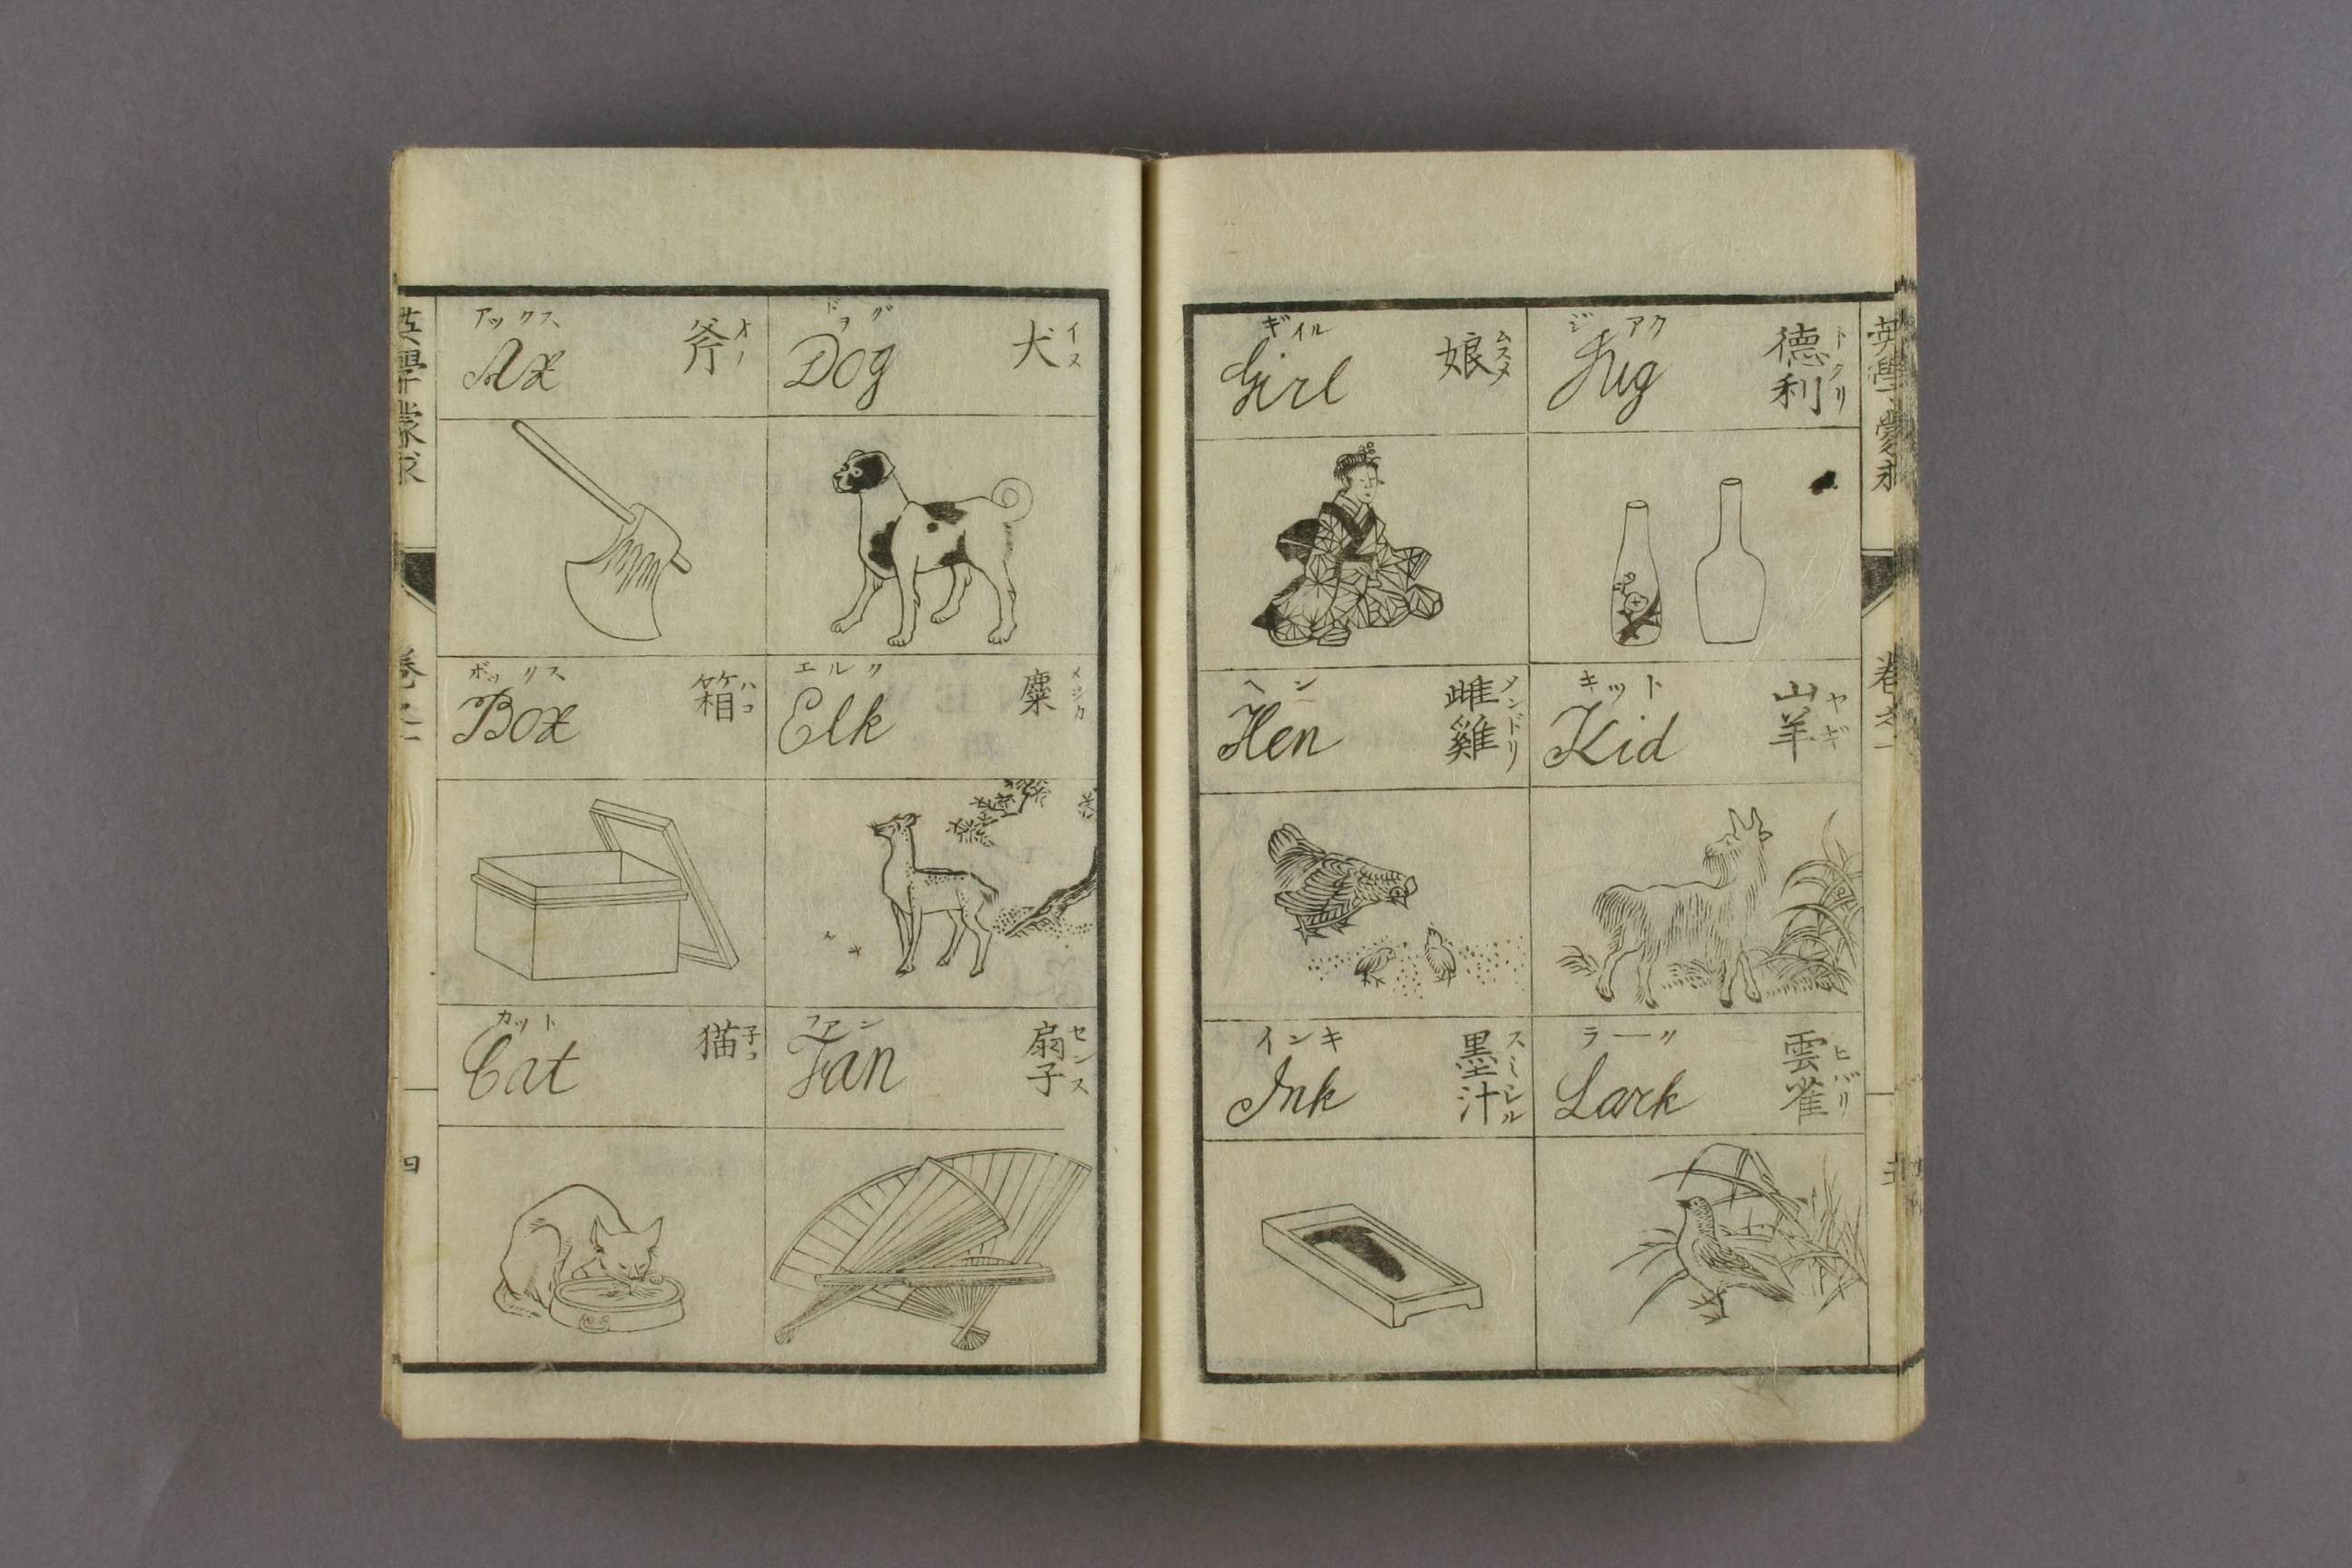 英學蒙求
巻之一
四
アックス
Ax
斧
オノ
ボックス
Box
箱
ハコ
カット
Cat
猫
子コ
ドヲグ
Dog
犬
イヌ
エルク
Elk
麋
メジカ
ファン
Fan
扇子
センス
ギイル
Girl
娘
ムスメ
ヘン
Hen
雌雞
メンドリ
インキ
Ink
墨汁
スミシル
ジアク
Jug
德利
トクリ
キット
Kid
山羊
ヤギ
ラーク
Lark
雲雀
ヒバリ
英學蒙求
巻之一